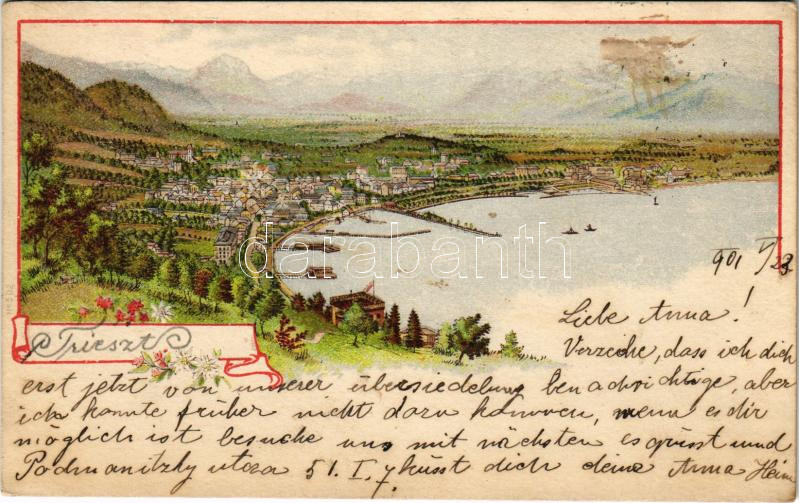 darabanth
901 V/23
Trieszt
Liebe Anna!
Verzeihe, dass ich dich
erst jetzt von unserer übersiedelung benachrichtige, aber
ich konnte früher nicht dazu kommen, wenn es dir
möglich ist besuche uns mit nächsten es grüsst und
Podmanitzky utcza 51. I. 7 küsst dich deine Anna Heim